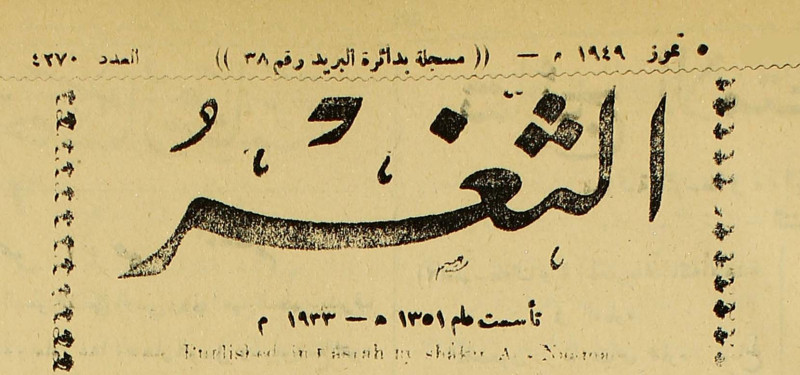 ٥ تموز ١٩٤٩ م — (( مسجلة بدائرة البريد رقم ٣٨ )) العدد ٤٢٧٠
الثغر
تأسست عام ١٣٥١ ه — ١٩٣٣ م
Published in Basrah by Shakir A.